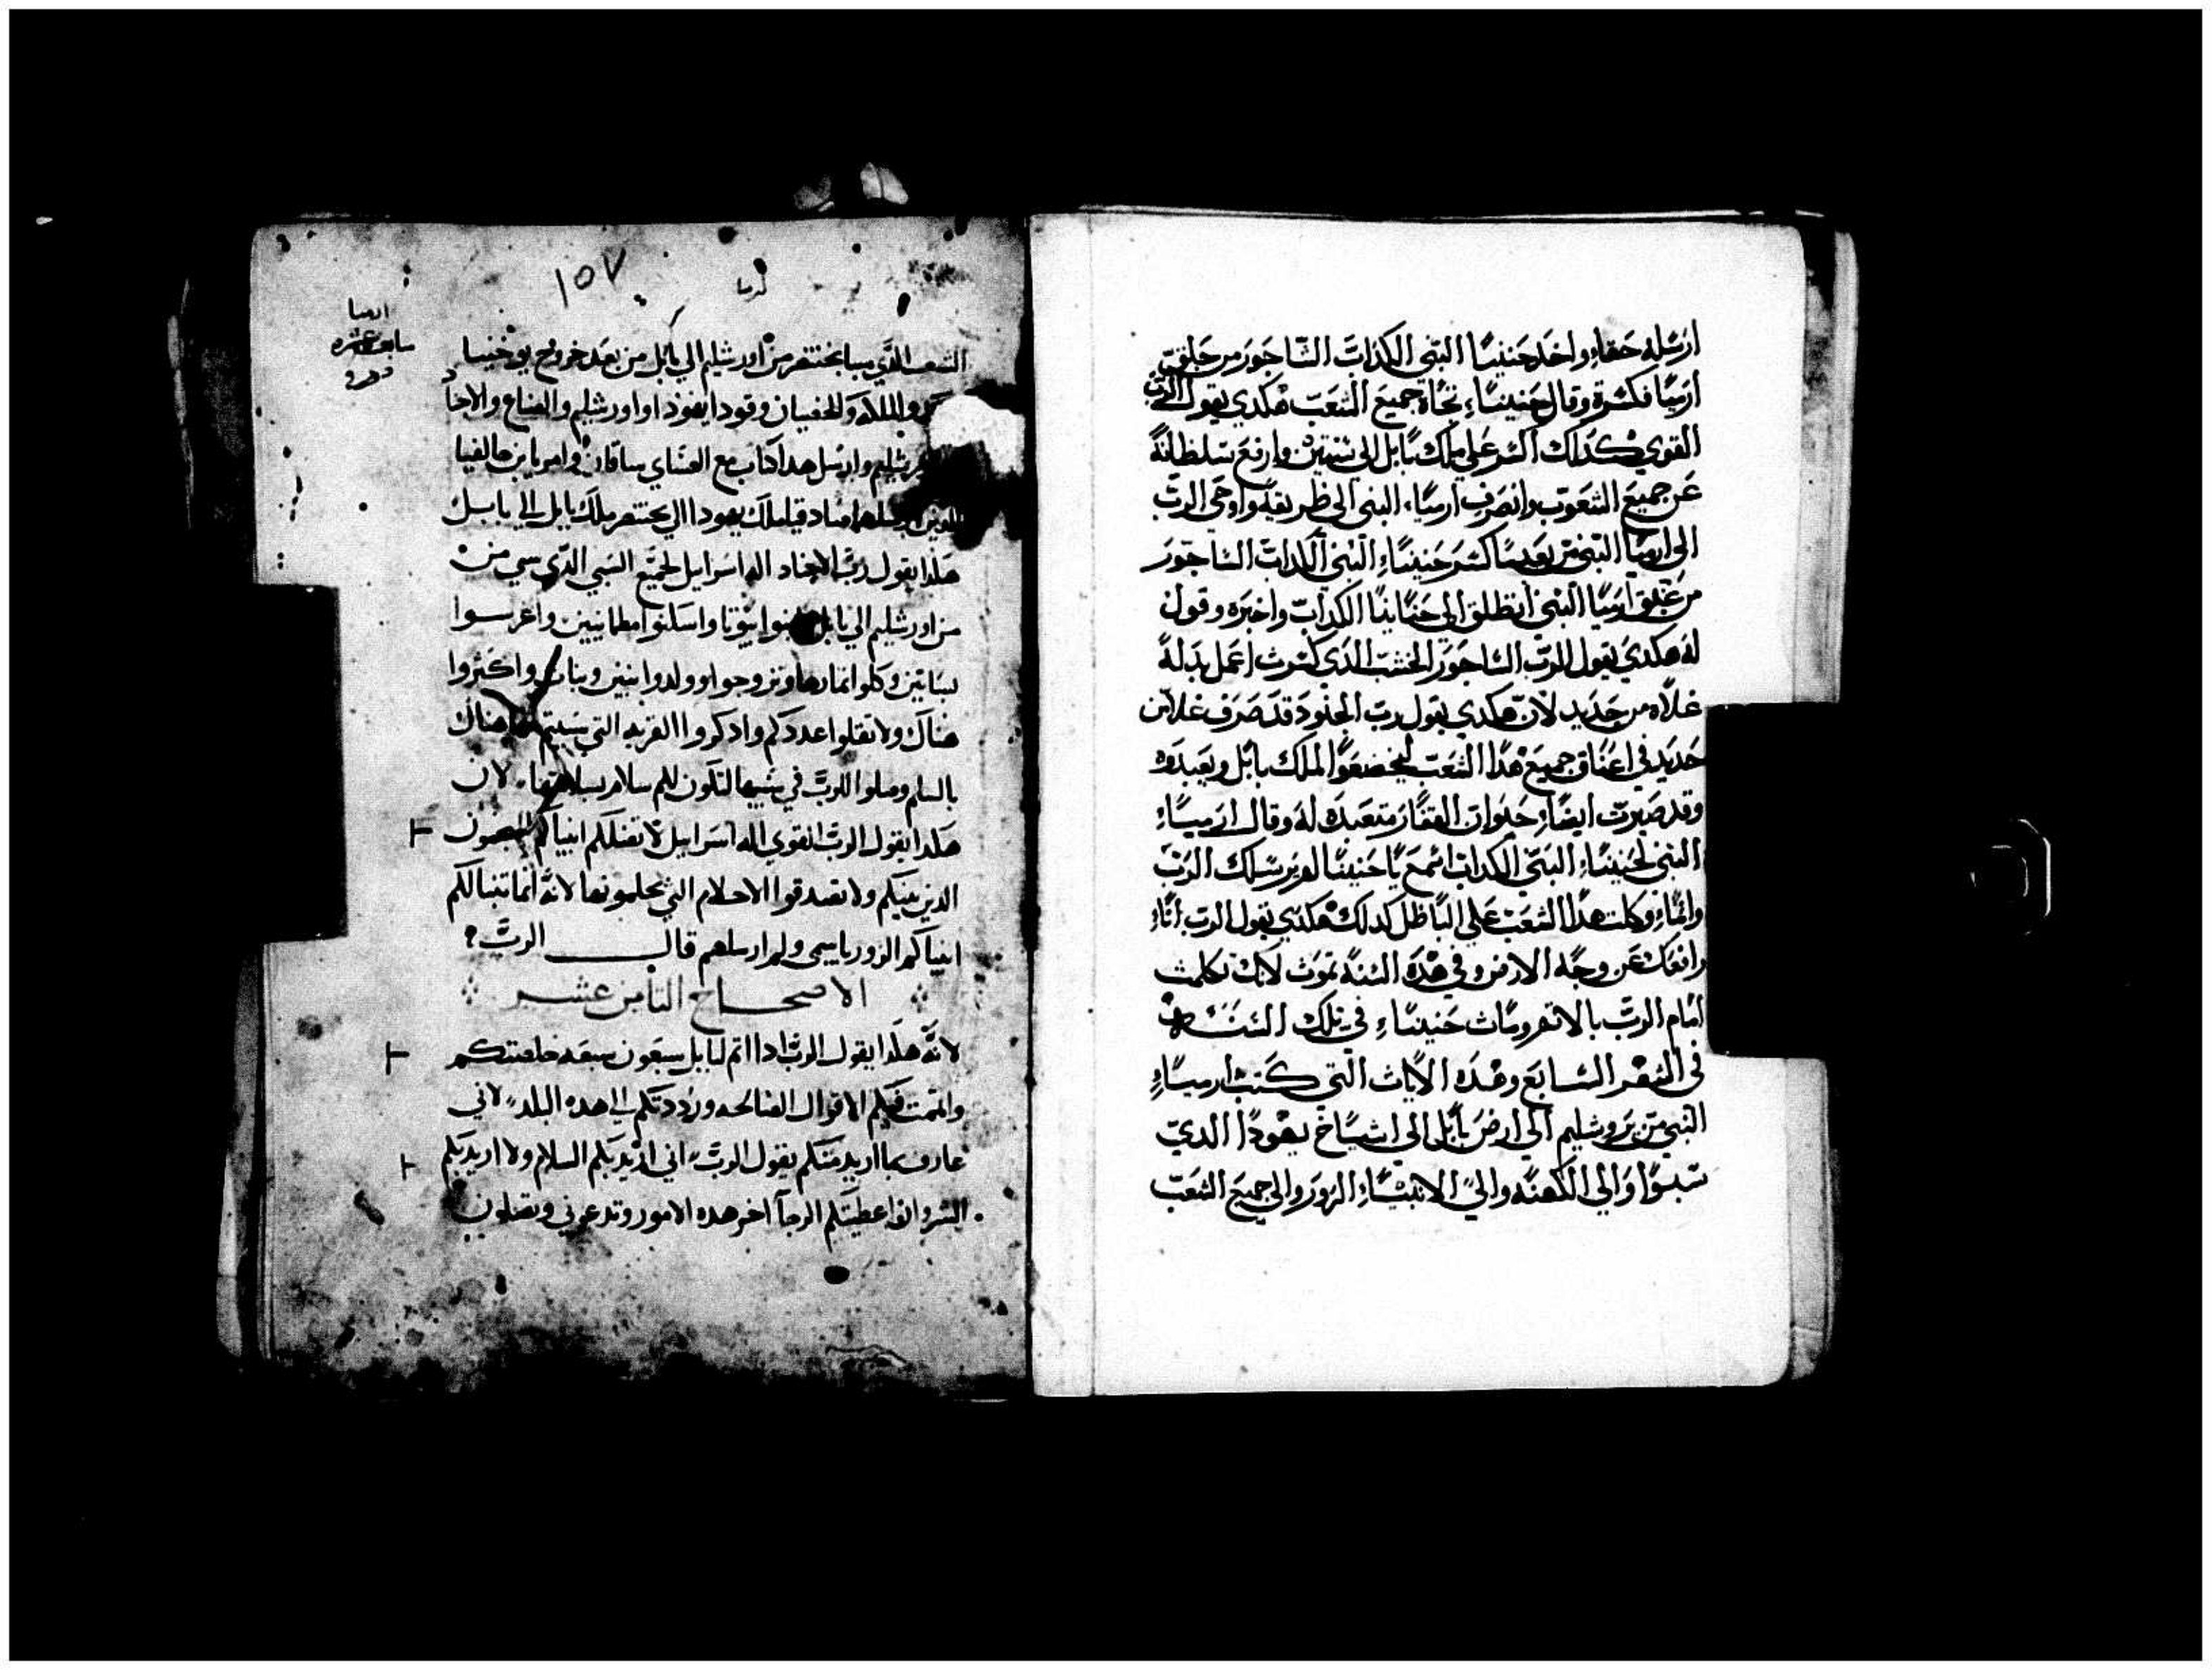 ارسله حقاء واخد حنينا النبي الكداب الساجور من حلق
ارميا فكسرة وقال حنينا تجاه جميع الشعب هكدي يقول الرب
القوي كدلك اكسر على ملك بابل الى سنتين وارفع سلطانة
عن جميع الشعوب وانصرف ارمياء النبي الى طريقه واوحى الرب
الى ارميا النبي من بعد ما كسر حنينياء النبي الكداب الساجور
من عنق ارميا النبي انطلق الى حنانيا الكداب واخبره وقول
له هكدي يقول الرب الساجور الخشب الدي كسرت اعمل بدلة
غلاه من حديد لان هكدي يقول رب الجنود قد صرف غلا من
حديد في اعناق جميع هدا الشعب ليخضعوا لملك بابل ويعبدوه
وقد صيرت ايضاء حلوان القفار متعبده له وقال ارمياء
النبي لحنيناء النبي الكداب اسمع يا حنينا لم يرسلك الرب
وانماء وكلت هدا الشعب على الباطل كدلك هكدي يقول الرب اناء
رافعك عن وجه الارض وفي هده السنة تموت لانك تكلمت
امام الرب بالاثم ومات حنيناء في تلك السنه
في الشهر السابع وهده الايات التي كتب ارمياء
النبي من يروشليم الى ارض بابل الى اشياخ يهودا الدي
سبوا والي الكهنه والي الانبياء الزور والى جميع الشعب
١٥٧
ارميا
ارميا
سابع عشره
الشعب الذي سبا بختنصر من اورشليم الي بابل من بعد خروج يوخنيا
والملكه والخصيان وقود ايهودا واورشليم والصناع والاجناد
وارسل هدا كتاب مع العسناي سافان وامريا بن حالفيا
اللذين ارسلهما صادقيا ملك يهودا الي بختنصر ملك بابل الي بابل
هكذا يقول رب الاجناد اله اسراييل لجميع السبي الذي سبي من
من اورشليم الي بابل ابنوا بيوتا واسكنوا مطمانيين واغرسوا
بساتين وكلوا اثمارها وتزوجوا وولدوا بنين وبنات واكثروا
هناك ولا تقلوا عددكم وادكروا القريه التي سبيتم هناك
بالسلم وصلوا للرب في سببها لتكون لكم سلام بسلامتها لان
هكدا يقول الرب القوي اله اسراييل لا تضلكم انبياكم
الذين بينكم ولا تصدقوا الاحلام التي يحلمونها لانه انما تنبا لكم
انبياكم الزور باسمي ولم ارسلهم قال الرب
الاصحاح الثامن عشر
لانه هكدا يقول الرب اذا اتم لبابل سبعون سبعه خلصتكم
واتممت فيكم الاقوال الصالحه ورددتكم الي هده البلد لاني
عارف بما اريد منكم يقول الرب اني اريد بكم السلام ولا اريد بكم
الشر وانا اعطيكم الرجا اخر هده الامور وتدعوني وتصلون